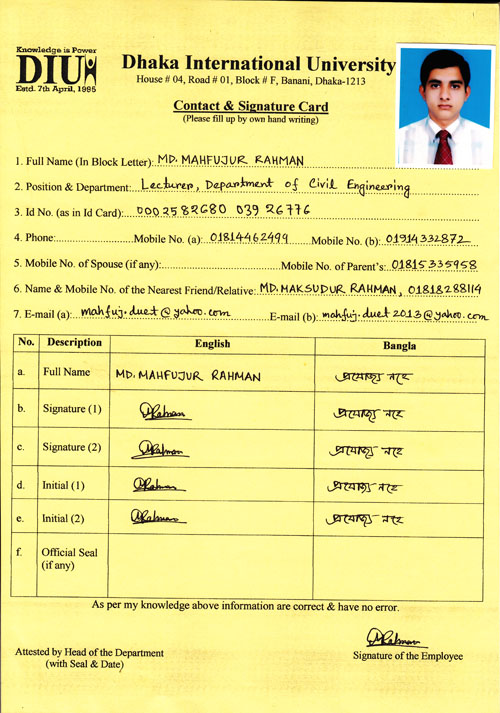 Knowledge is Power
DIU
Estd. 7th April, 1995
Dhaka International University
House # 04, Road # 01, Block # F, Banani, Dhaka-1213
Contact & Signature Card
(Please fill up by own hand writing)
1. Full Name (In Block Letter): MD. MAHFUJUR RAHMAN
2. Position & Department: Lecturer, Department of Civil Engineering
3. Id No. (as in Id Card): 0002582680 039 26776
4. Phone: Mobile No. (a): 01814462499 Mobile No. (b): 01914332872
5. Mobile No. of Spouse (if any): Mobile No. of Parent's: 01815335958
6. Name & Mobile No. of the Nearest Friend/Relative: MD. MAKSUDUR RAHMAN, 01818288114
7. E-mail (a): mahfuj.duet@yahoo.com E-mail (b): mahfuj.duet2013@yahoo.com
No. Description English Bangla
a. Full Name MD. MAHFUJUR RAHMAN প্রযোজ্য নহে
b. Signature (1) Rahman প্রযোজ্য নহে
c. Signature (2) Rahman প্রযোজ্য নহে
d. Initial (1) Rahman প্রযোজ্য নহে
e. Initial (2) Rahman প্রযোজ্য নহে
f. Official Seal
(if any)
As per my knowledge above information are correct & have no error.
Rahman
Attested by Head of the Department Signature of the Employee
(with Seal & Date)